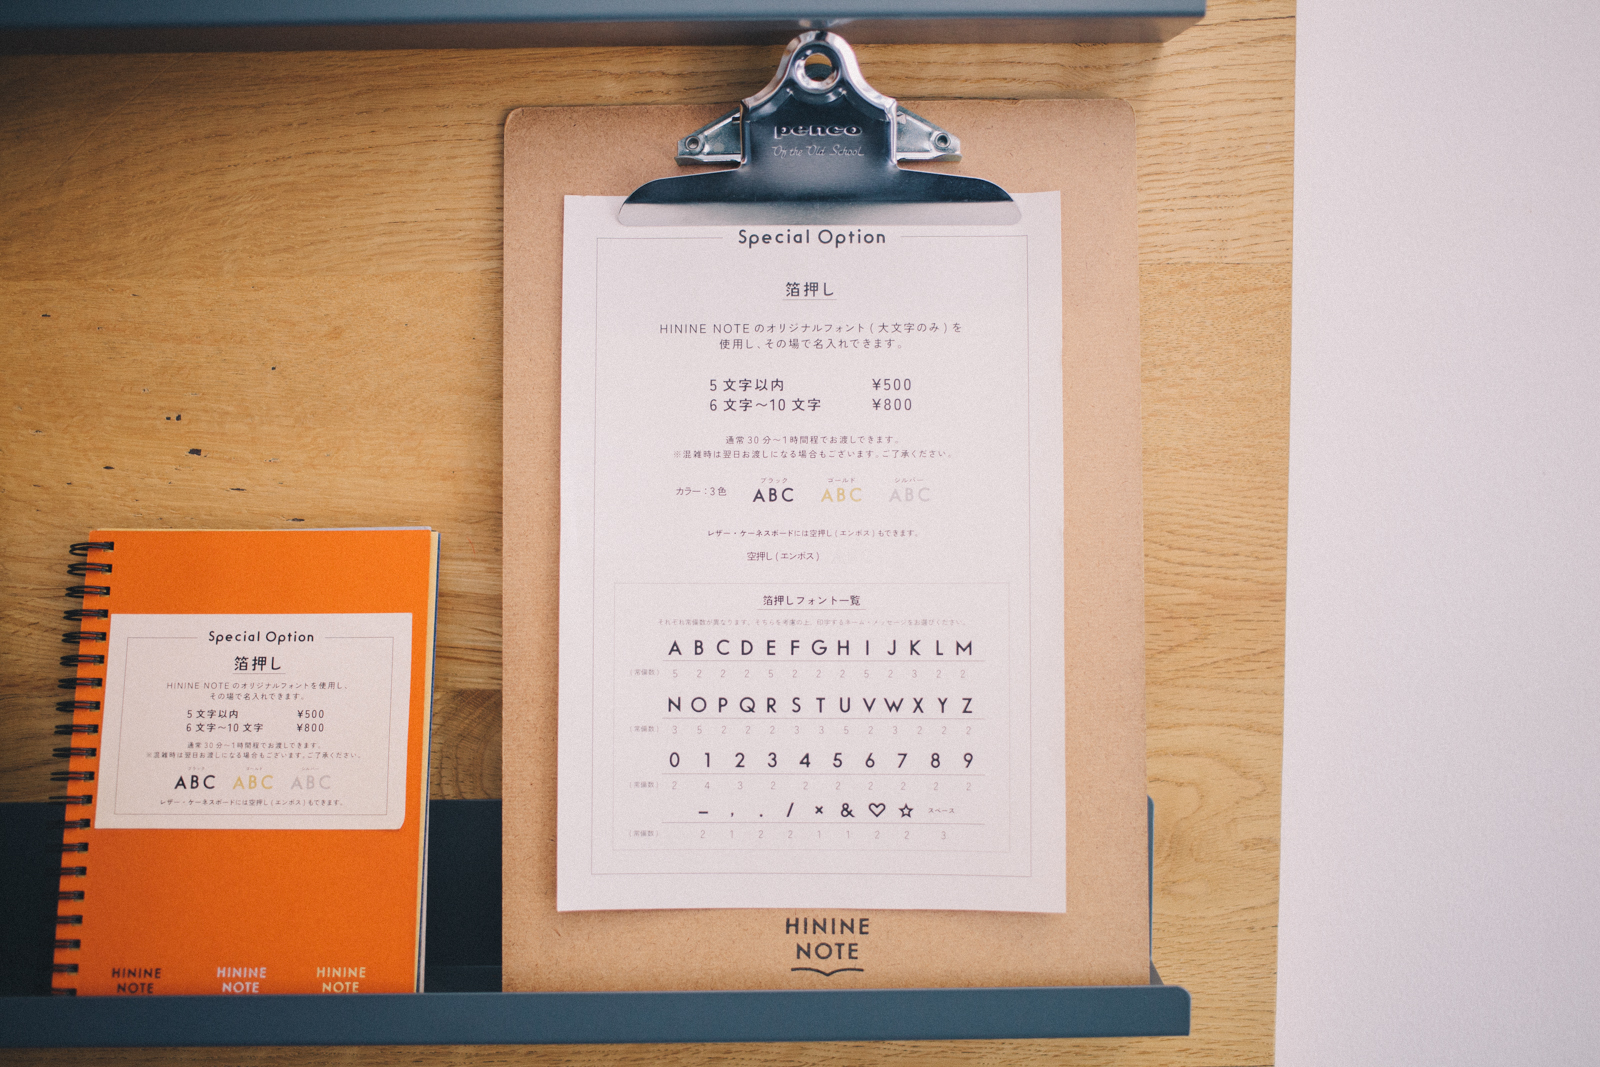 penco
On the Old School
Special Option
箔押し
HININE NOTE のオリジナルフォント ( 大文字のみ ) を
使用し、その場で名入れできます。
5 文字以内 ¥500
6 文字〜10 文字 ¥800
通常 30 分〜1時間程でお渡しできます。
※混雑時は翌日お渡しになる場合もございます。ご了承ください。
ブラック ゴールド シルバー
カラー：3色 ABC ABC ABC
レザー・ケーネスボードには空押し ( エンボス ) もできます。
空押し ( エンボス )
箔押しフォント一覧
それぞれ常備数が異なります。そちらを考慮の上、印字するネーム・メッセージをお選びください。
A B C D E F G H I J K L M
( 常備数 ) 5 2 2 2 5 2 2 2 5 2 3 2 2
N O P Q R S T U V W X Y Z
( 常備数 ) 3 5 2 2 2 3 3 5 2 3 2 2 2
0 1 2 3 4 5 6 7 8 9
( 常備数 ) 2 4 3 2 2 2 2 2 2 2
– , . / × & ♡ ☆ スペース
( 常備数 ) 2 1 2 2 1 1 2 2 3
HININE
NOTE
Special Option
箔押し
HININE NOTE のオリジナルフォントを使用し、
その場で名入れできます。
5 文字以内 ¥500
6 文字〜10 文字 ¥800
通常 30 分〜1時間程でお渡しできます。
※混雑時は翌日お渡しになる場合もございます。ご了承ください。
ブラック ゴールド シルバー
ABC ABC ABC
レザー・ケーネスボードには空押し ( エンボス ) もできます。
HININE HININE HININE
NOTE NOTE NOTE